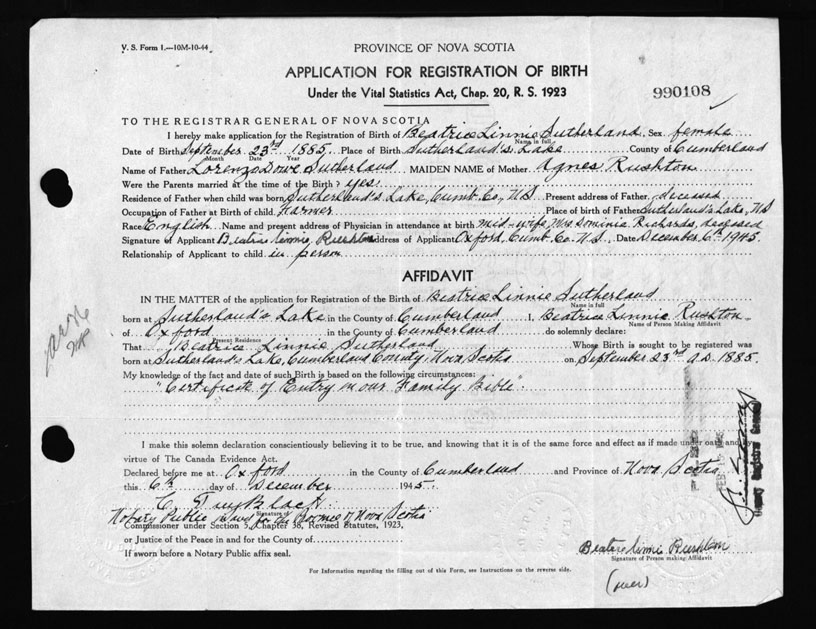 V. S. Form 1.—10M-10-44
PROVINCE OF NOVA SCOTIA
APPLICATION FOR REGISTRATION OF BIRTH
Under the Vital Statistics Act, Chap. 20, R. S. 1923
990108
TO THE REGISTRAR GENERAL OF NOVA SCOTIA
I hereby make application for the Registration of Birth of Beatrice Linnie Sutherland Sex female
Name in full
Date of Birth September 23rd 1885 Place of Birth Sutherland's Lake County of Cumberland
Month Date Year
Name of Father Lorenzo Dow Sutherland MAIDEN NAME of Mother Agnes Rushton
Were the Parents married at the time of the Birth? yes
Residence of Father when child was born Sutherland's Lake, Cumb. Co, N.S Present address of Father deceased
Occupation of Father at Birth of child Farmer Place of birth of Father Sutherland's Lake, NS
Race English Name and present address of Physician in attendance at birth mid-wife, Mrs Dominia Richards, deceased
Signature of Applicant Beatrice Linnie Rushton Address of Applicant Oxford, Cumb. Co. N.S. Date December 6th 1945
Relationship of Applicant to child in person
AFFIDAVIT
IN THE MATTER of the application for Registration of the Birth of Beatrice Linnie Sutherland
Name in full
born at Sutherland's Lake in the County of Cumberland I, Beatrice Linnie Rushton
Name of Person Making Affidavit
of Oxford in the County of Cumberland do solemnly declare:
Present Residence
That Beatrice Linnie Sutherland Whose Birth is sought to be registered was
born at Sutherland's Lake, Cumberland County, Nova Scotia on September 23rd A.D. 1885.
My knowledge of the fact and date of such Birth is based on the following circumstances:
"Certificate of Entry in our Family Bible".
I make this solemn declaration conscientiously believing it to be true, and knowing that it is of the same force and effect as if made under oath and by
virtue of The Canada Evidence Act.
Declared before me at Oxford in the County of Cumberland and Province of Nova Scotia
this 6th day of December 1945
Notary Public in and for the Province of Nova Scotia
Signature of
Commissioner under Section 5, Chapter 38, Revised Statutes, 1923,
or Justice of the Peace in and for the County of
If sworn before a Notary Public affix seal.
Beatrice Linnie Rushton
Signature of Person making Affidavit
For Information regarding the filling out of this Form, see Instructions on the reverse side.
(over)